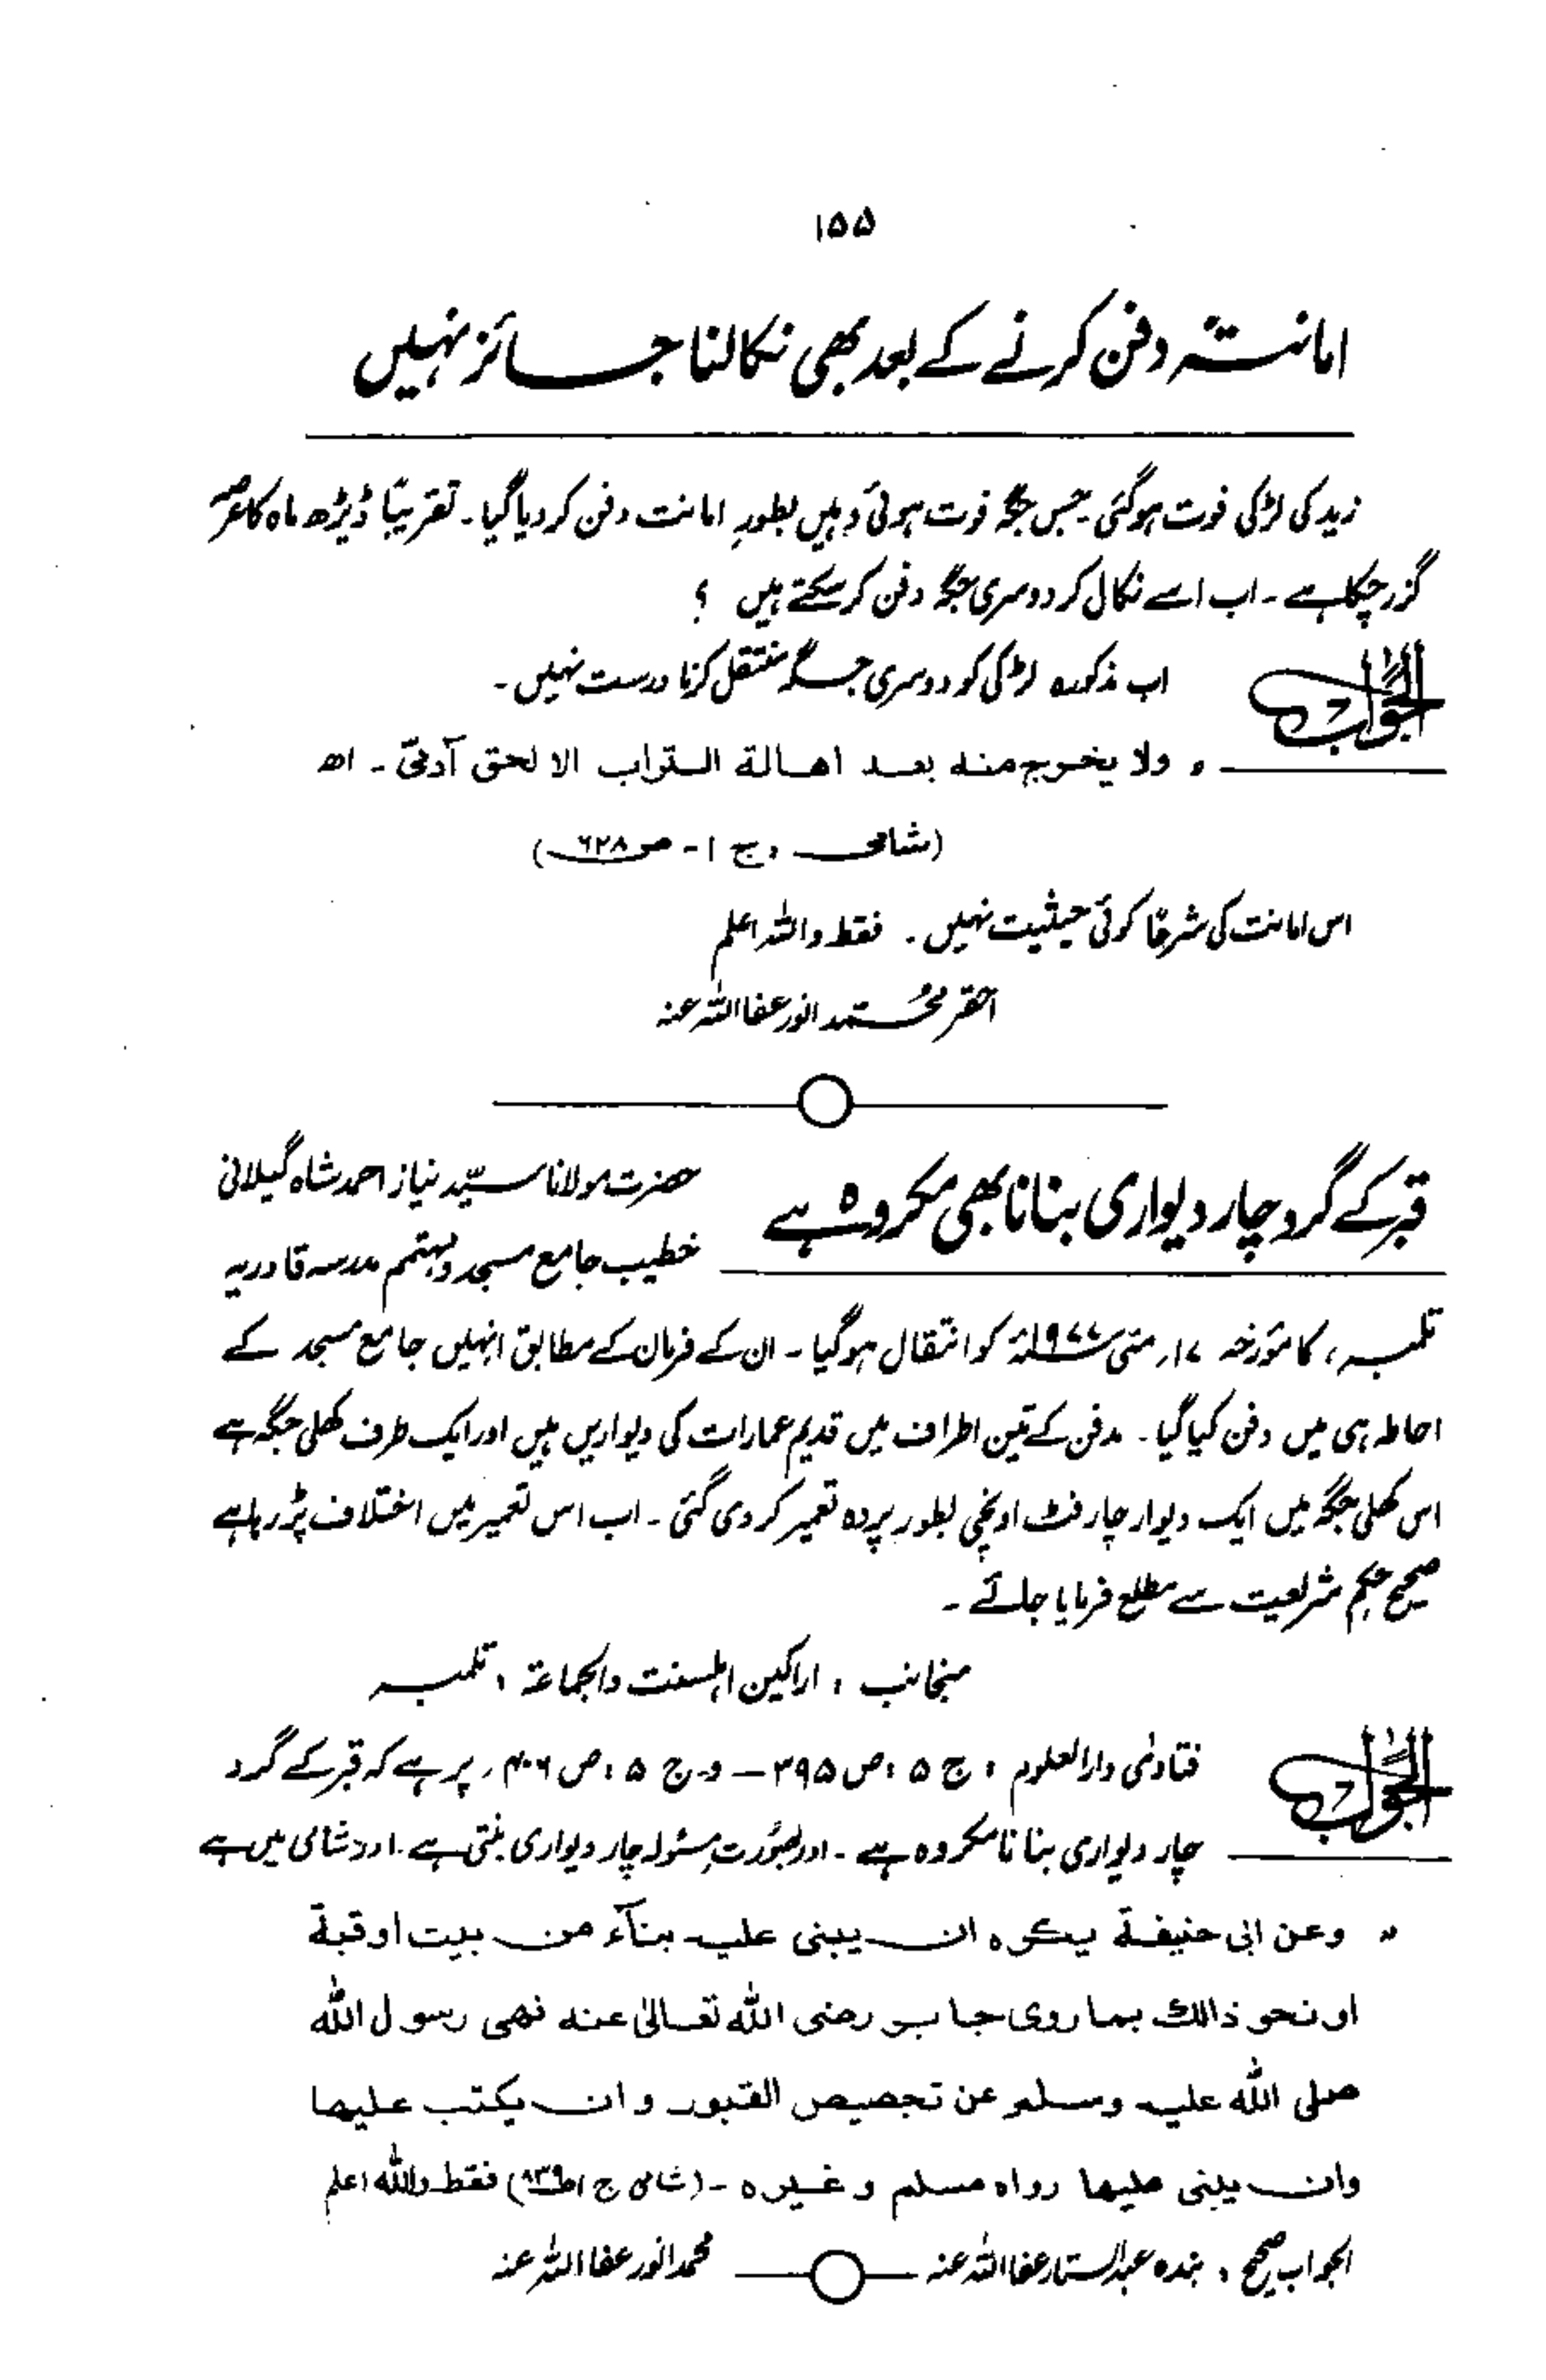 ۱۵۵
امانتہً دفن کرنے کے بعد بھی نکالنا جائز نہیں
زید کی لڑکی فوت ہوگئی۔ جس جگہ فوت ہوئی وہیں بطورِ امانت دفن کر دیا گیا۔ تقریباً ڈیڑھ ماہ کا عرصہ
گزر چکا ہے۔ اب اسے نکال کر دوسری جگہ دفن کر سکتے ہیں ؟
الجواب
اب مذکورہ لڑکی کو دوسری جگہ منتقل کرنا درست نہیں۔
" ولا يخرج منه بعد اهالة التراب الا لحق آدمیّ۔ اھ
(شامی ، ج ۱- ص ۶۲۸)
اس امانت کی شرعًا کوئی حیثیت نہیں۔ فقط واللہ اعلم
احقر محمد انور عفا اللہ عنہ
قبر کے گرد چار دیواری بنانا بھی مکروہ ہے
حضرت مولانا سیّد نیاز احمد شاہ گیلانی
خطیب جامع مسجد و مہتمم مدرسہ قادریہ
تلمبہ، کا مؤرخہ ۱۷ مئی ۱۹۷۷ء کو انتقال ہوگیا۔ ان کے فرمان کے مطابق انہیں جامع مسجد کے
احاطہ ہی میں دفن کیا گیا۔ مدفن کے تین اطراف میں قدیم عمارات کی دیواریں ہیں اور ایک طرف کھلی جگہ ہے
اس کھلی جگہ میں ایک دیوار چار فٹ اونچی بطور پردہ تعمیر کر دی گئی۔ اب اس تعمیر میں اختلاف پڑ رہا ہے
صحیح حکم شریعت سے مطلع فرمایا جائے۔
منجانب ، اراکین اہلسنت والجماعۃ ، تلمبہ
الجواب
فتاویٰ دارالعلوم ، ج ۵ ، ص ۳۹۵ — و ج ۵ ، ص ۴۰۶ ، پر ہے کہ قبر کے گرد
چار دیواری بنانا مکروہ ہے۔ اور بصُورتِ مسئولہ چار دیواری بنتی ہے۔ اور شامی میں ہے
" وعن ابی حنیفة یکره ان یبنی علیہ بنآء من بیت او قبة
او نحو ذالك بما روی جابر رضی اللہ تعالیٰ عنه نهی رسول اللہ
صلی اللہ علیہ وسلم عن تجصیص القبور وان یکتب علیها
وان یبنی علیها رواه مسلم وغیره ۔ (شامی ج ۱ ص ۸۳۹) فقط واللہ اعلم
الجواب صحیح ، بندہ عبدالستار عفا اللہ عنہ
محمد انور عفا اللہ عنہ